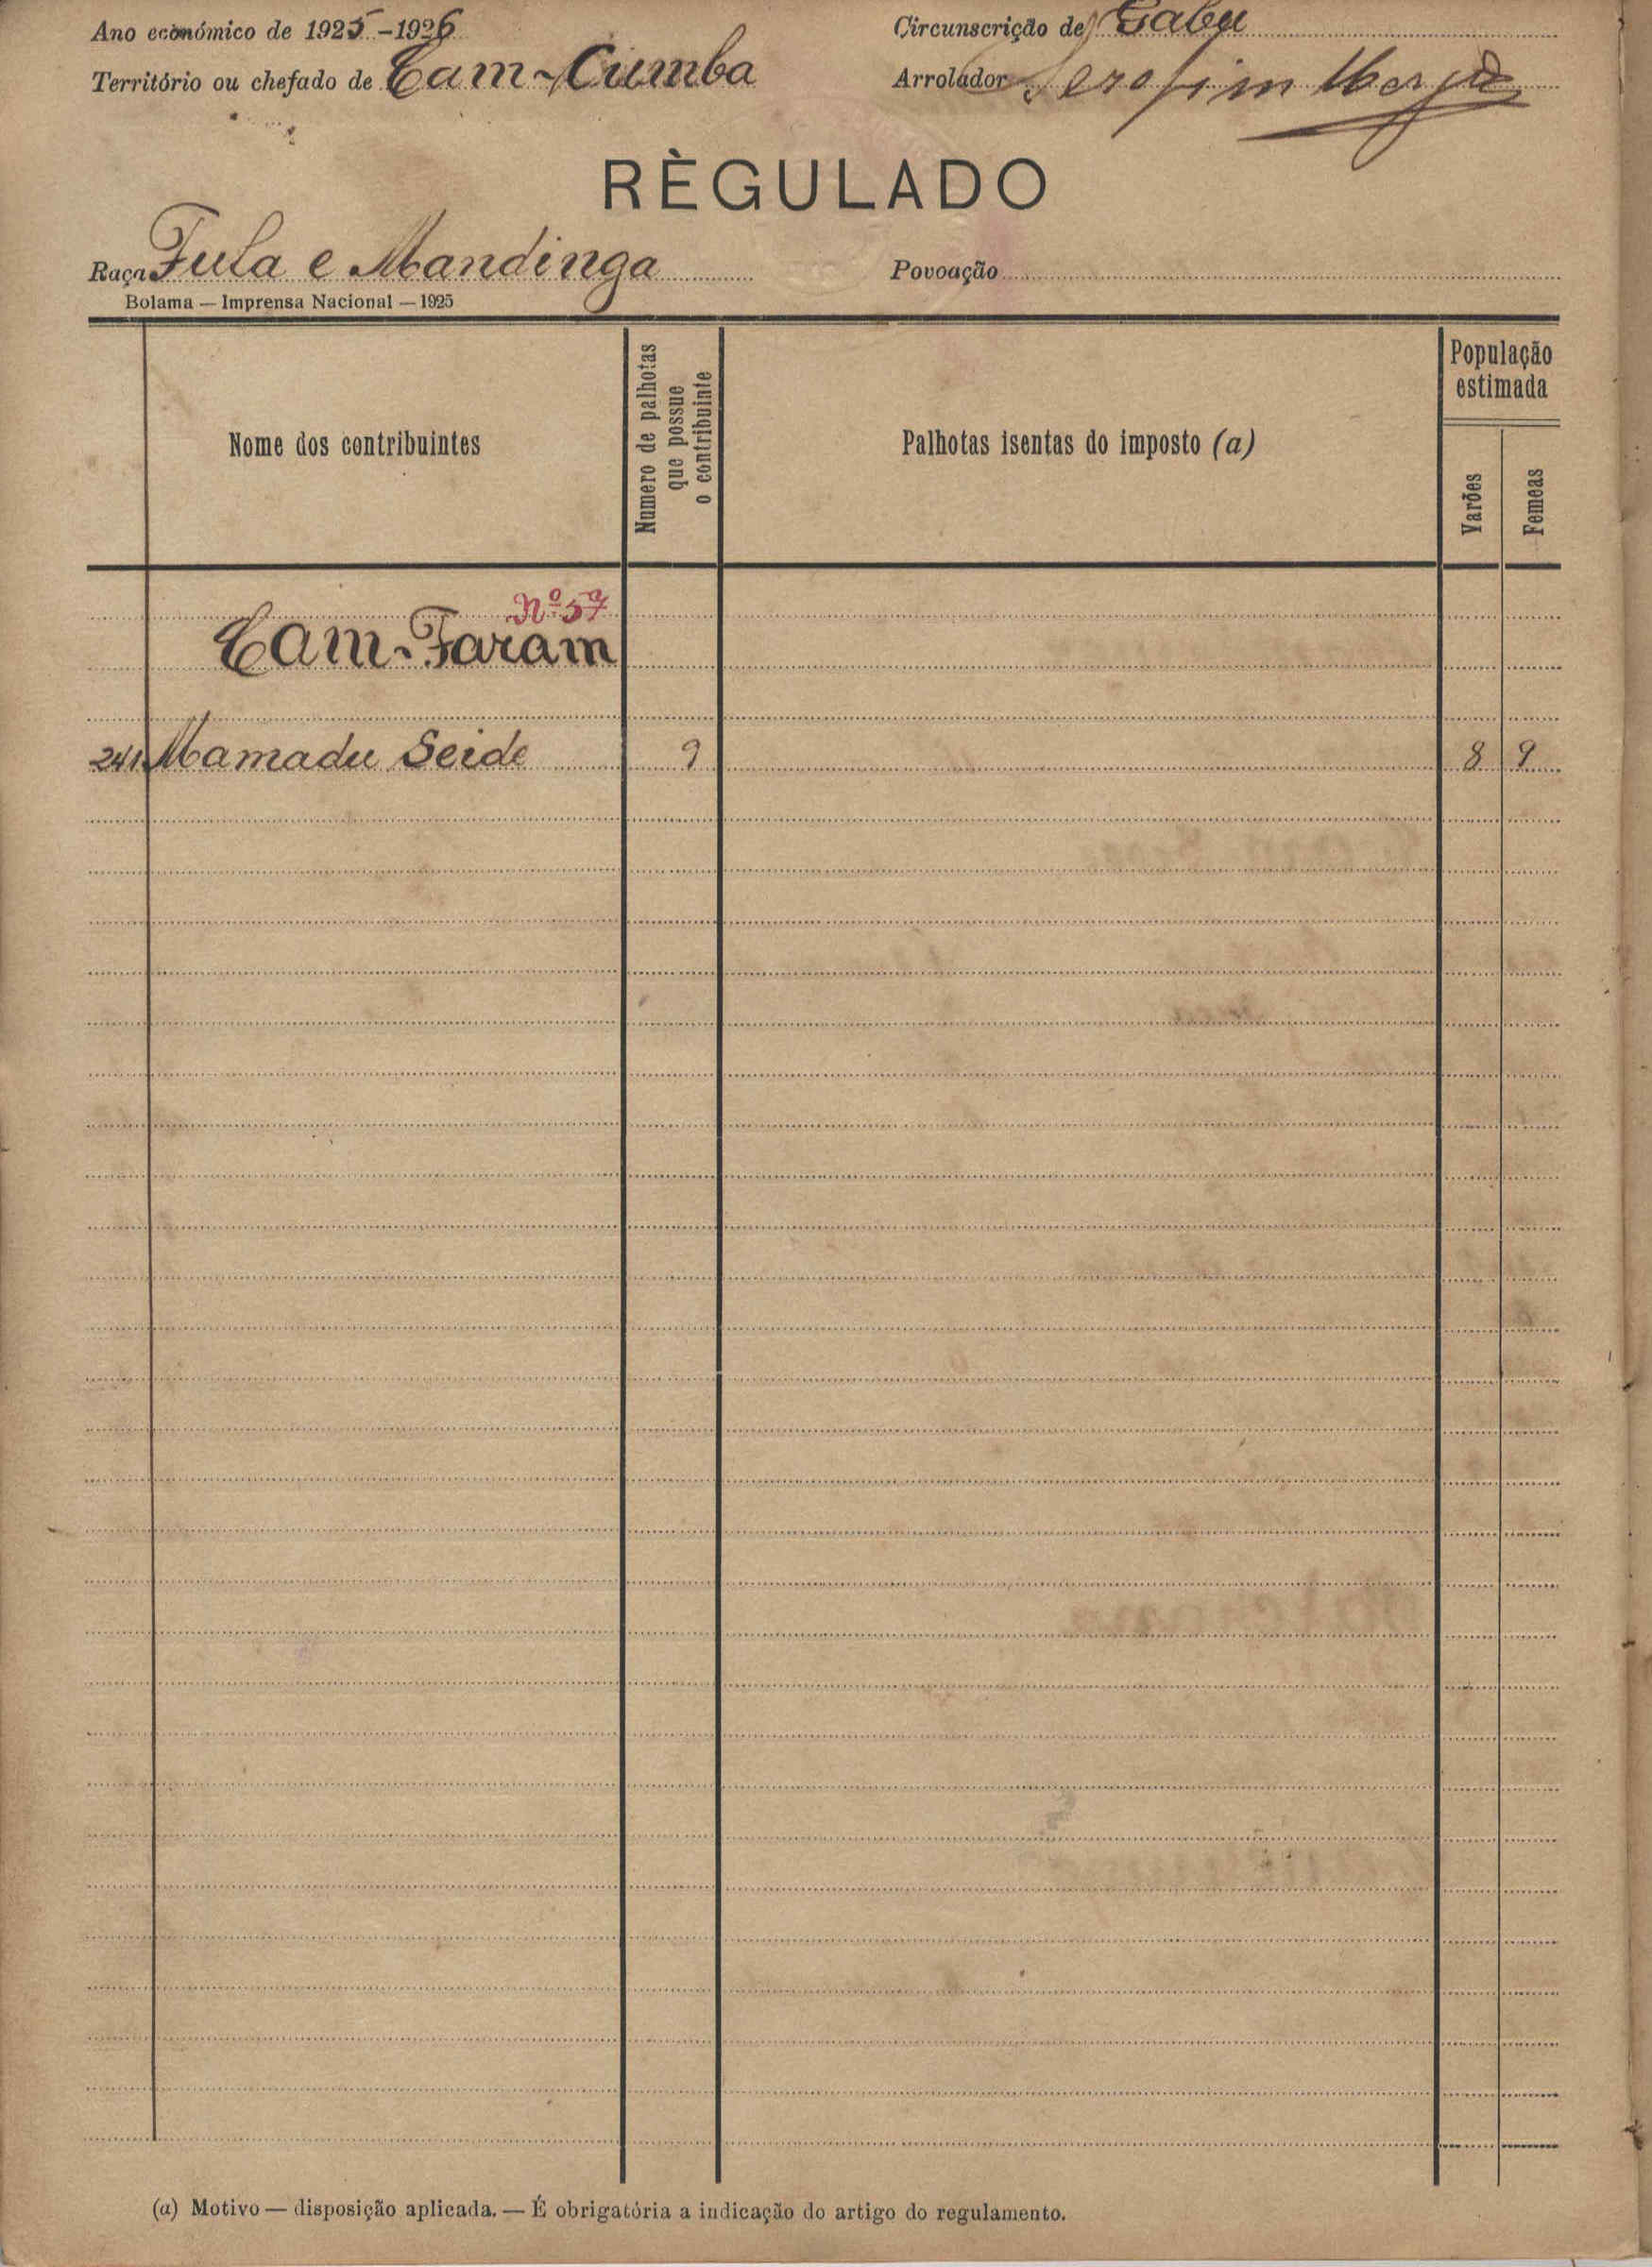 Ano económico de 1925-1926
Circunscrição de Gabu
Território ou chefado de Cam-Cumba
Arrolador Serafim
RÈGULADO
Raça Fula e Mandinga
Povoação
Bolama — Imprensa Nacional — 1925
Nome dos contribuintes
Numero de palhotas que possue o contribuinte
Palhotas isentas do imposto (a)
População estimada
Varões
Femeas
Nº 57
Cam-Faram
241 Mamadu Seide 9 8 9
(a) Motivo — disposição aplicada. — É obrigatória a indicação do artigo do regulamento.